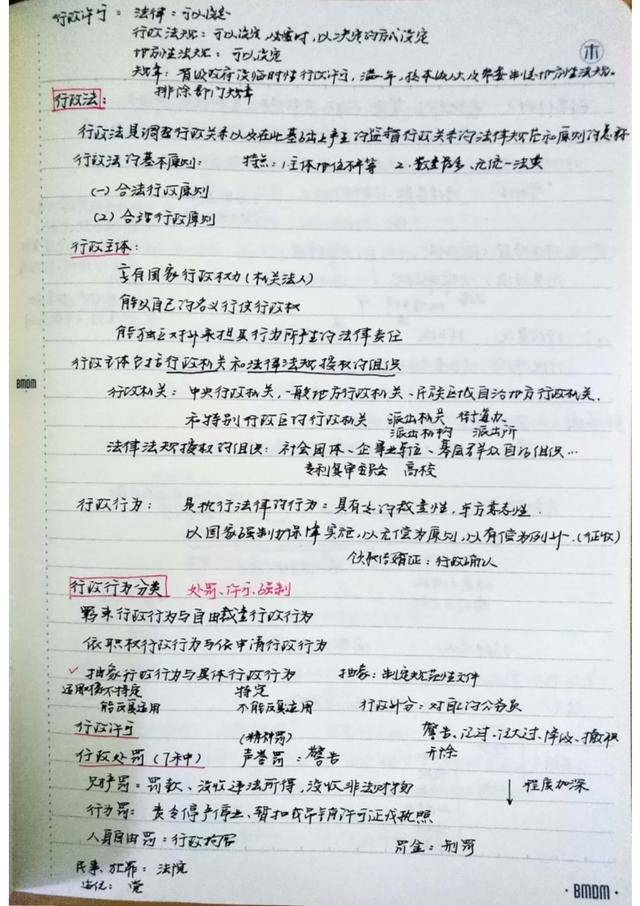 行政许可：法律：可以设定
行政法规：可以设定，必要时，以决定的方式设定
地方性法规：可以设定
规章：省级政府设临时性行政许可，满一年，提本级人大及常委制定地方性法规。
排除部门规章
本
行政法：
行政法是调整行政关系以及在此基础上产生的监督行政关系的法律规范和原则的总称
行政法的基本原则： 特点：1.主体地位不平等 2.数量居多、无统一法典
(一) 合法行政原则
(2) 合理行政原则
行政主体：
享有国家行政权力(机关法人)
能以自己的名义行使行政权
能独立对外承担其行为所产生的法律责任
行政主体包括行政机关和法律法规授权的组织
BMDM
行政机关：中央行政机关，一般地方行政机关、民族区域自治地方行政机关、
和特别行政区的行政机关 派出机关 街道办
派出机构 派出所
法律法规授权的组织：社会团体、企事业单位、基层群众自治组织…
专利复审委员会 高校
行政行为：是执行法律的行为：具有一定的裁量性，单方意志性
以国家强制力保障实施，以无偿为原则，以有偿为例外。(征收)
行政确认
行政行为分类 处罚、许可、强制
羁束行政行为与自由裁量行政行为
依职权行政行为与依申请行政行为
✓ 抽象行政行为与具体行政行为 抽象：制定规范性文件
适用对象不特定 特定
能反复适用 不能反复适用 行政处分：对自己的公务员
行政许可 (精神罚) 警告、记过、记大过、降级、撤职
开除
行政处罚(7种) 声誉罚：警告
财产罚：罚款、没收违法所得，没收非法财物 ↓ 程度加深
行为罚：责令停产停业、暂扣或吊销许可证或执照
人身自由罚：行政拘留 罚金：刑罚
民事、犯罪：法院
违纪：党
BMDM